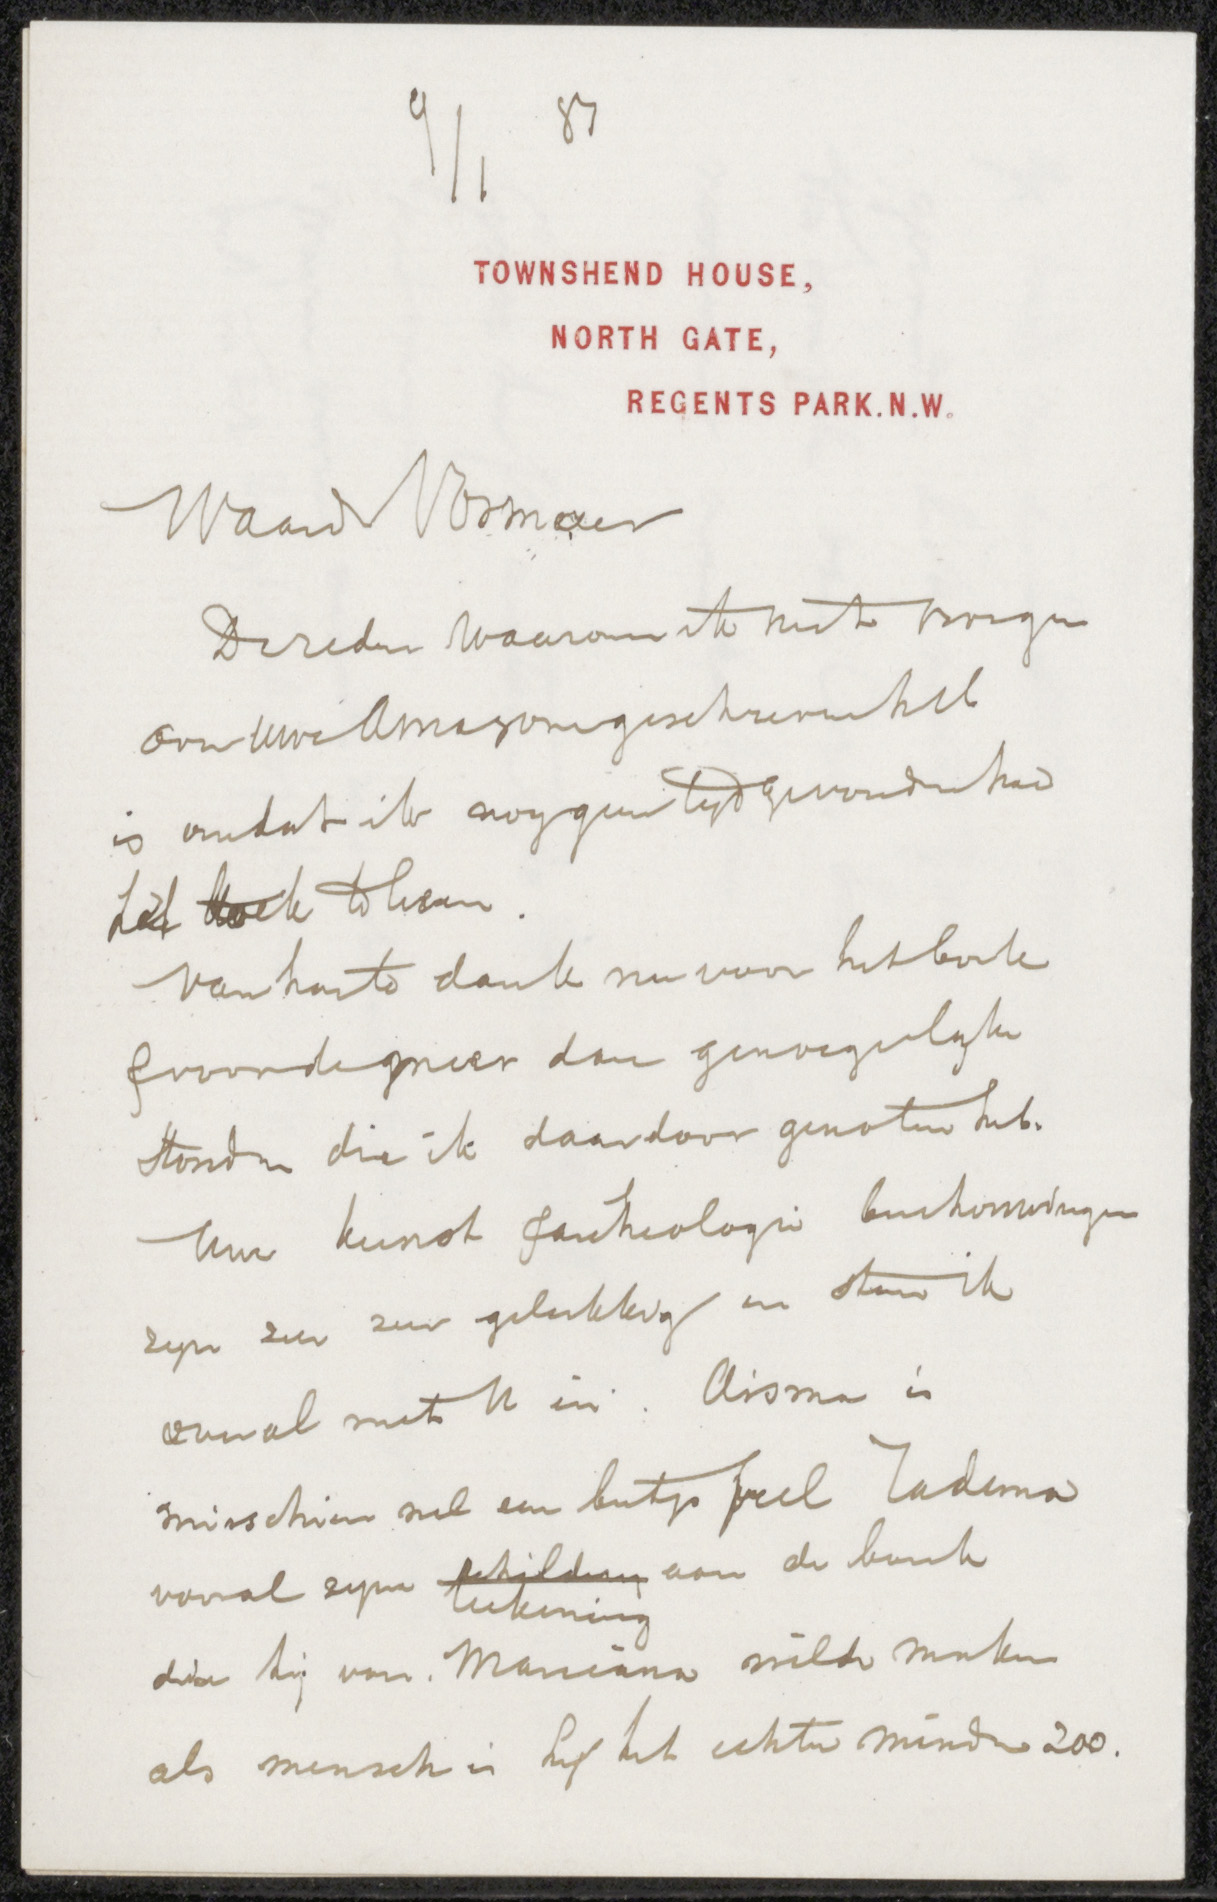 9/1 81
TOWNSHEND HOUSE,
NORTH GATE,
REGENTS PARK.N.W.
Waarde Vosmaer
De reden waarom ik niet vroeger
over uwe Amazone geschreven heb
is omdat ik nog geen tijd gevonden had
het boek te lezen.
Van harte dank nu voor het boek
& voor de meer dan genoegelijke
stonden die ik daardoor genoten heb.
Uwe kunst & archeologie beschouwingen
zijn zeer zeer gelukkig en stem ik
overal met U in. Aisma is
misschien wel een beetje veel Tadema
vooral zijne schildering aan de bank
teekening
die hij van Marciana wilde maken
als mensch is hij het echter minder zoo.